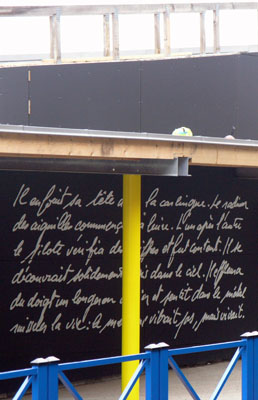 Il enfouit sa tête la carlingue. Le radium
des aiguilles luire. L'un après l'autre
le pilote vérifia et fut content. Il se
découvrait solidement dans le ciel. Il effleura
du doigt un longeron et sentit dans le métal
ruisseler la vie : le vibrait pas, mais vivait.